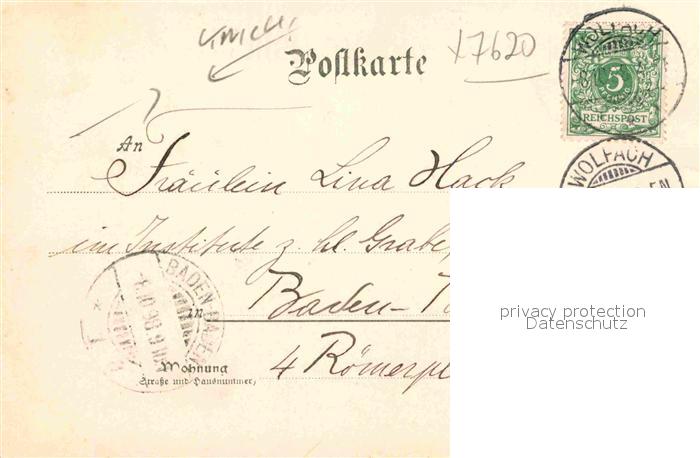 x7620
Postkarte
WOLFACH
5
REICHSPOST
WOLFACH
An
Fräulein Lina Hack
im Institute z. hl. Grabe
BADEN-BADEN
Baden-
in
4 Römerpl
Wohnung
(Straße und Hausnummer)
privacy protection
Datenschutz